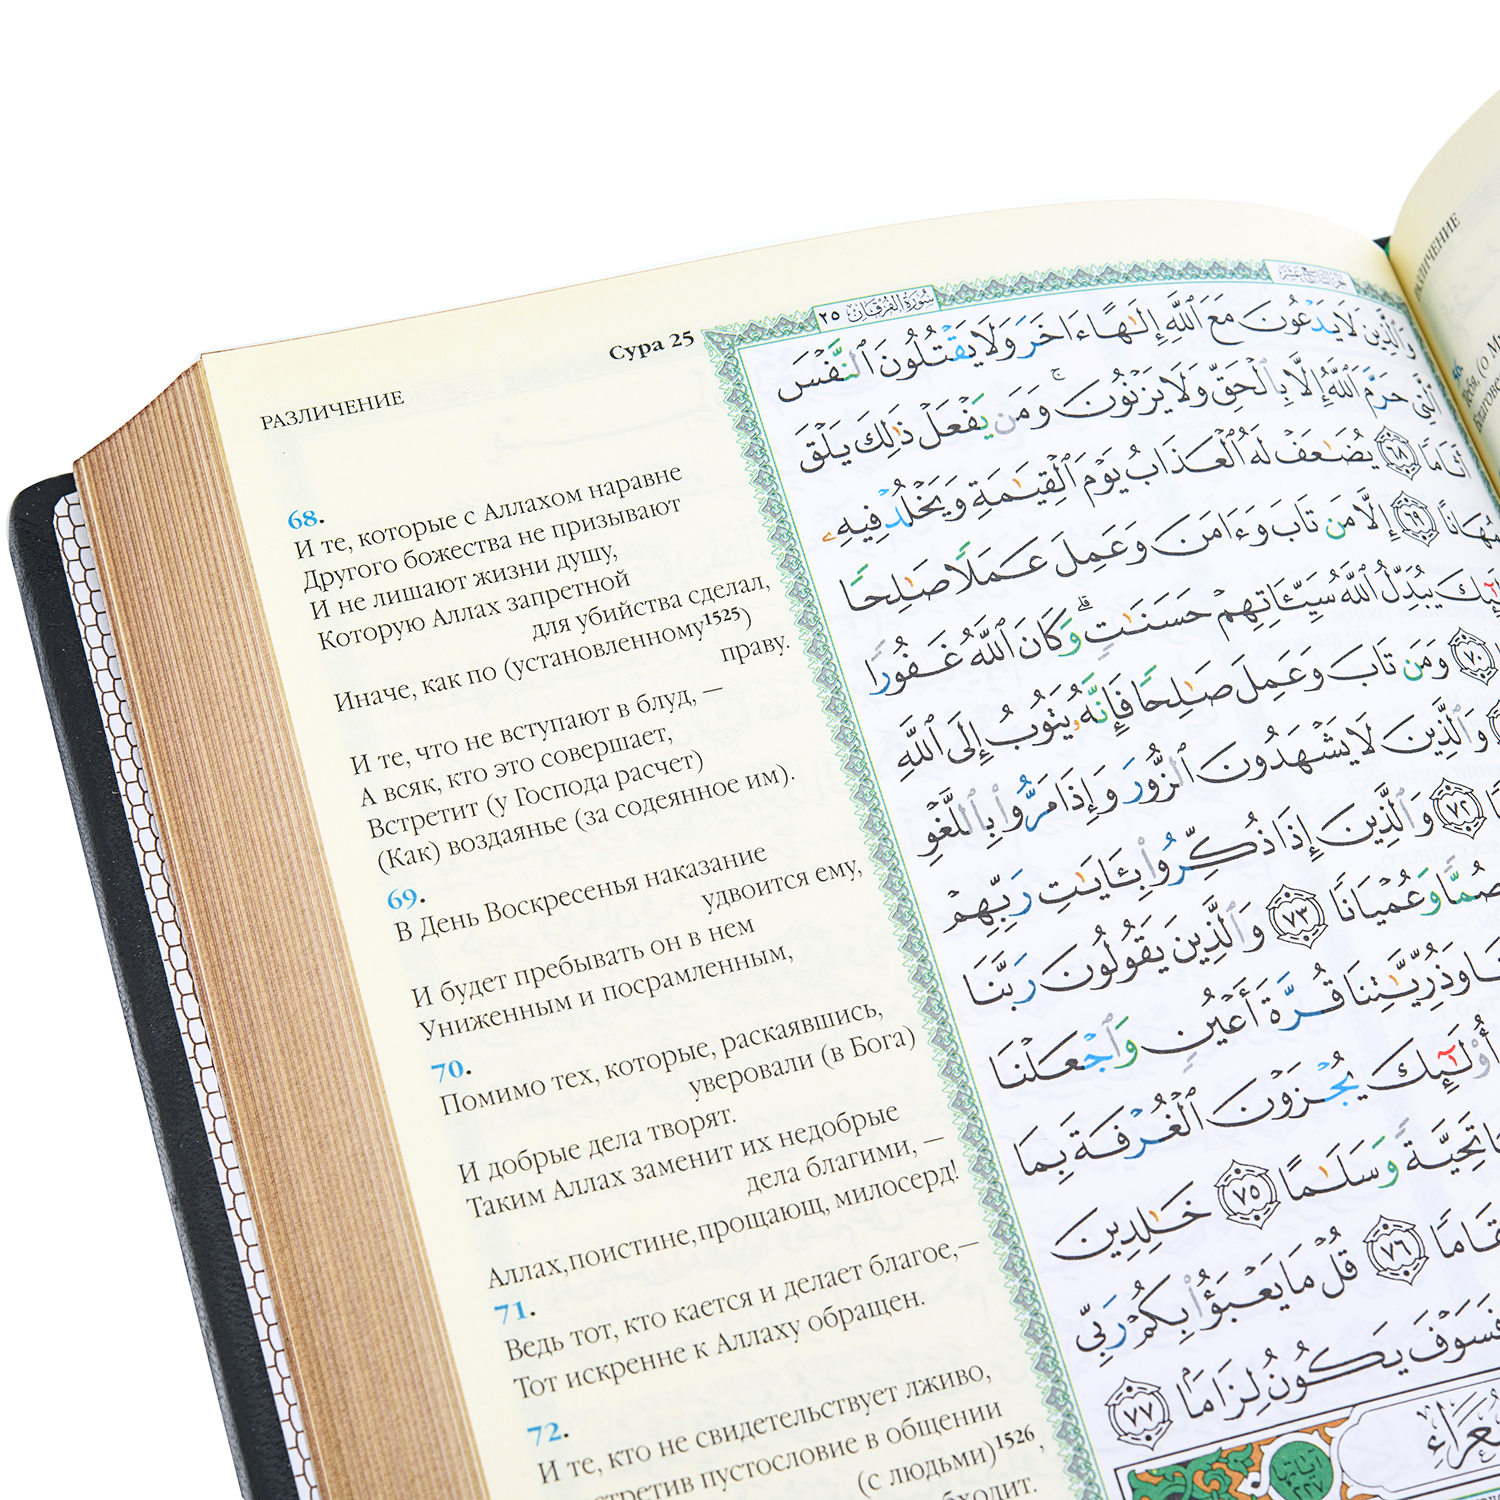 РАЗЛИЧЕНИЕ
Сура 25
68.
И те, которые с Аллахом наравне
Другого божества не призывают
И не лишают жизни душу,
Которую Аллах запретной
для убийства сделал,
Иначе, как по (установленному¹⁵²⁵)
праву.
И те, что не вступают в блуд, —
А всяк, кто это совершает,
Встретит (у Господа расчет)
(Как) воздаянье (за содеянное им).
69.
В День Воскресенья наказание
удвоится ему,
И будет пребывать он в нем
Униженным и посрамленным,
70.
Помимо тех, которые, раскаявшись,
уверовали (в Бога)
И добрые дела творят.
Таким Аллах заменит их недобрые
дела благими, —
Аллах,поистине,прощающ, милосерд!
71.
Ведь тот, кто кается и делает благое,—
Тот искренне к Аллаху обращен.
72.
И те, кто не свидетельствует лживо,
пустословие в общении
(с людьми)¹⁵²⁶,
سُورَةُ الفُرْقَان ٢٥
وَٱلَّذِينَ لَا يَدْعُونَ مَعَ ٱللَّهِ إِلَٰهًا ءَاخَرَ وَلَا يَقْتُلُونَ ٱلنَّفْسَ
ٱلَّتِى حَرَّمَ ٱللَّهُ إِلَّا بِٱلْحَقِّ وَلَا يَزْنُونَ ۚ وَمَن يَفْعَلْ ذَٰلِكَ يَلْقَ
أَثَامًا ٦٨ يُضَٰعَفْ لَهُ ٱلْعَذَابُ يَوْمَ ٱلْقِيَٰمَةِ وَيَخْلُدْ فِيهِۦ
مُهَانًا ٦٩ إِلَّا مَن تَابَ وَءَامَنَ وَعَمِلَ عَمَلًا صَٰلِحًا
يُبَدِّلُ ٱللَّهُ سَيِّـَٔاتِهِمْ حَسَنَٰتٍ ۗ وَكَانَ ٱللَّهُ غَفُورًا
٧٠ وَمَن تَابَ وَعَمِلَ صَٰلِحًا فَإِنَّهُۥ يَتُوبُ إِلَى ٱللَّهِ
وَٱلَّذِينَ لَا يَشْهَدُونَ ٱلزُّورَ وَإِذَا مَرُّوا۟ بِٱللَّغْوِ
٧٢ وَٱلَّذِينَ إِذَا ذُكِّرُوا۟ بِـَٔايَٰتِ رَبِّهِمْ
صُمًّا وَعُمْيَانًا ٧٣ وَٱلَّذِينَ يَقُولُونَ رَبَّنَا
وَذُرِّيَّٰتِنَا قُرَّةَ أَعْيُنٍ وَٱجْعَلْنَا
أُو۟لَٰٓئِكَ يُجْزَوْنَ ٱلْغُرْفَةَ بِمَا
تَحِيَّةً وَسَلَٰمًا ٧٥ خَٰلِدِينَ
٧٦ قُلْ مَا يَعْبَؤُا۟ بِكُمْ رَبِّى
فَسَوْفَ يَكُونُ لِزَامًا ٧٧
РАЗЛИЧЕНИЕ